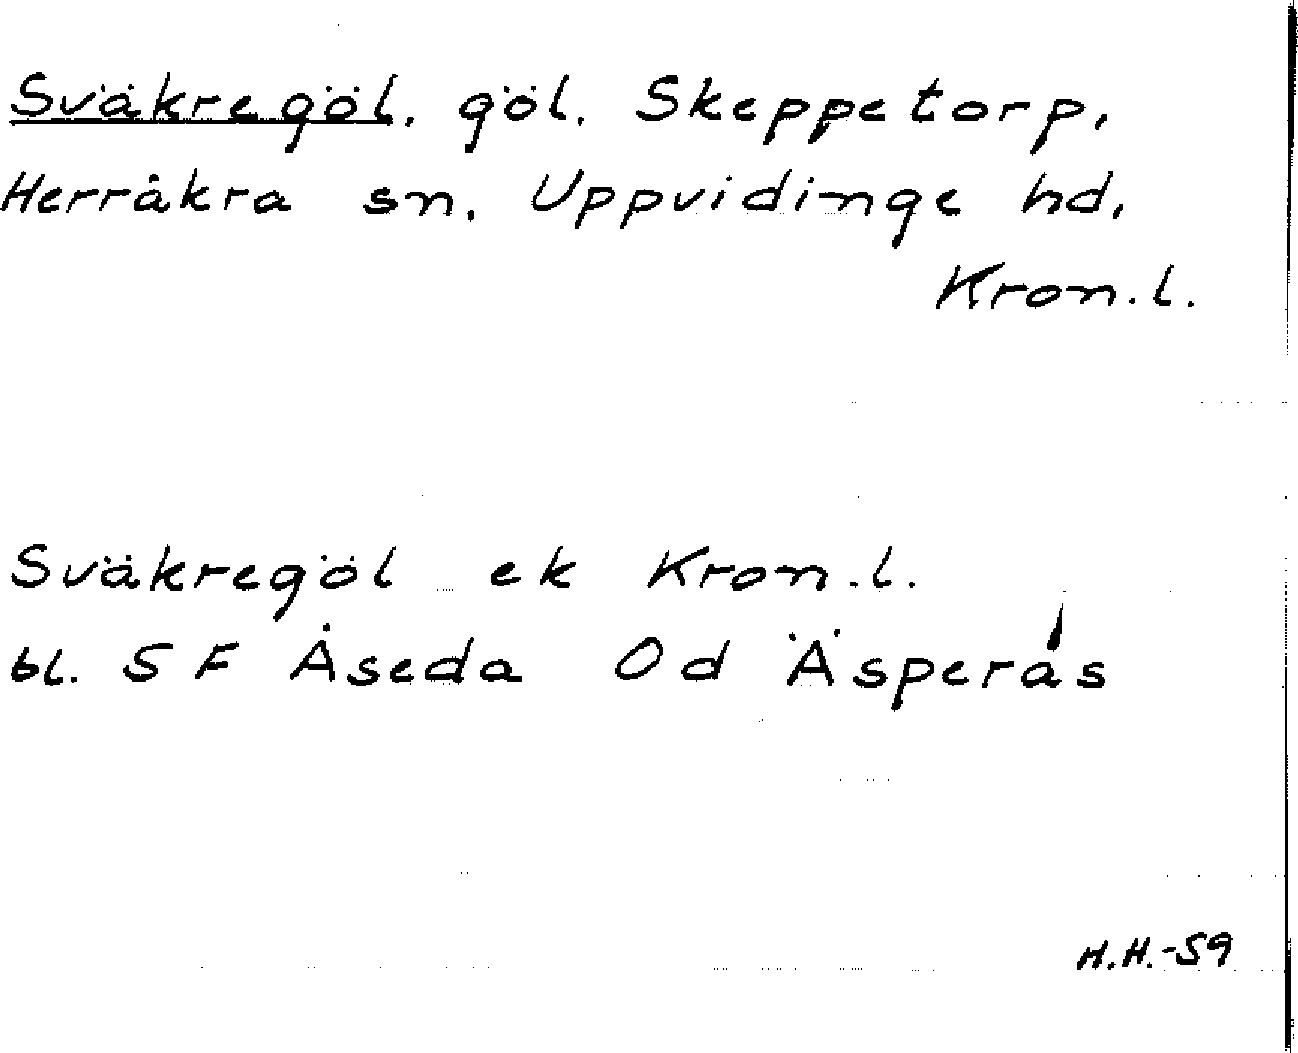 Sväkregöl. göl. Skeppetorp,
Herråkra sn. Uppvidinge hd,
Kron.l.
Sväkregöl ek Kron.l.
bl. 5 F Åseda Od Äsperås
H.H.-59